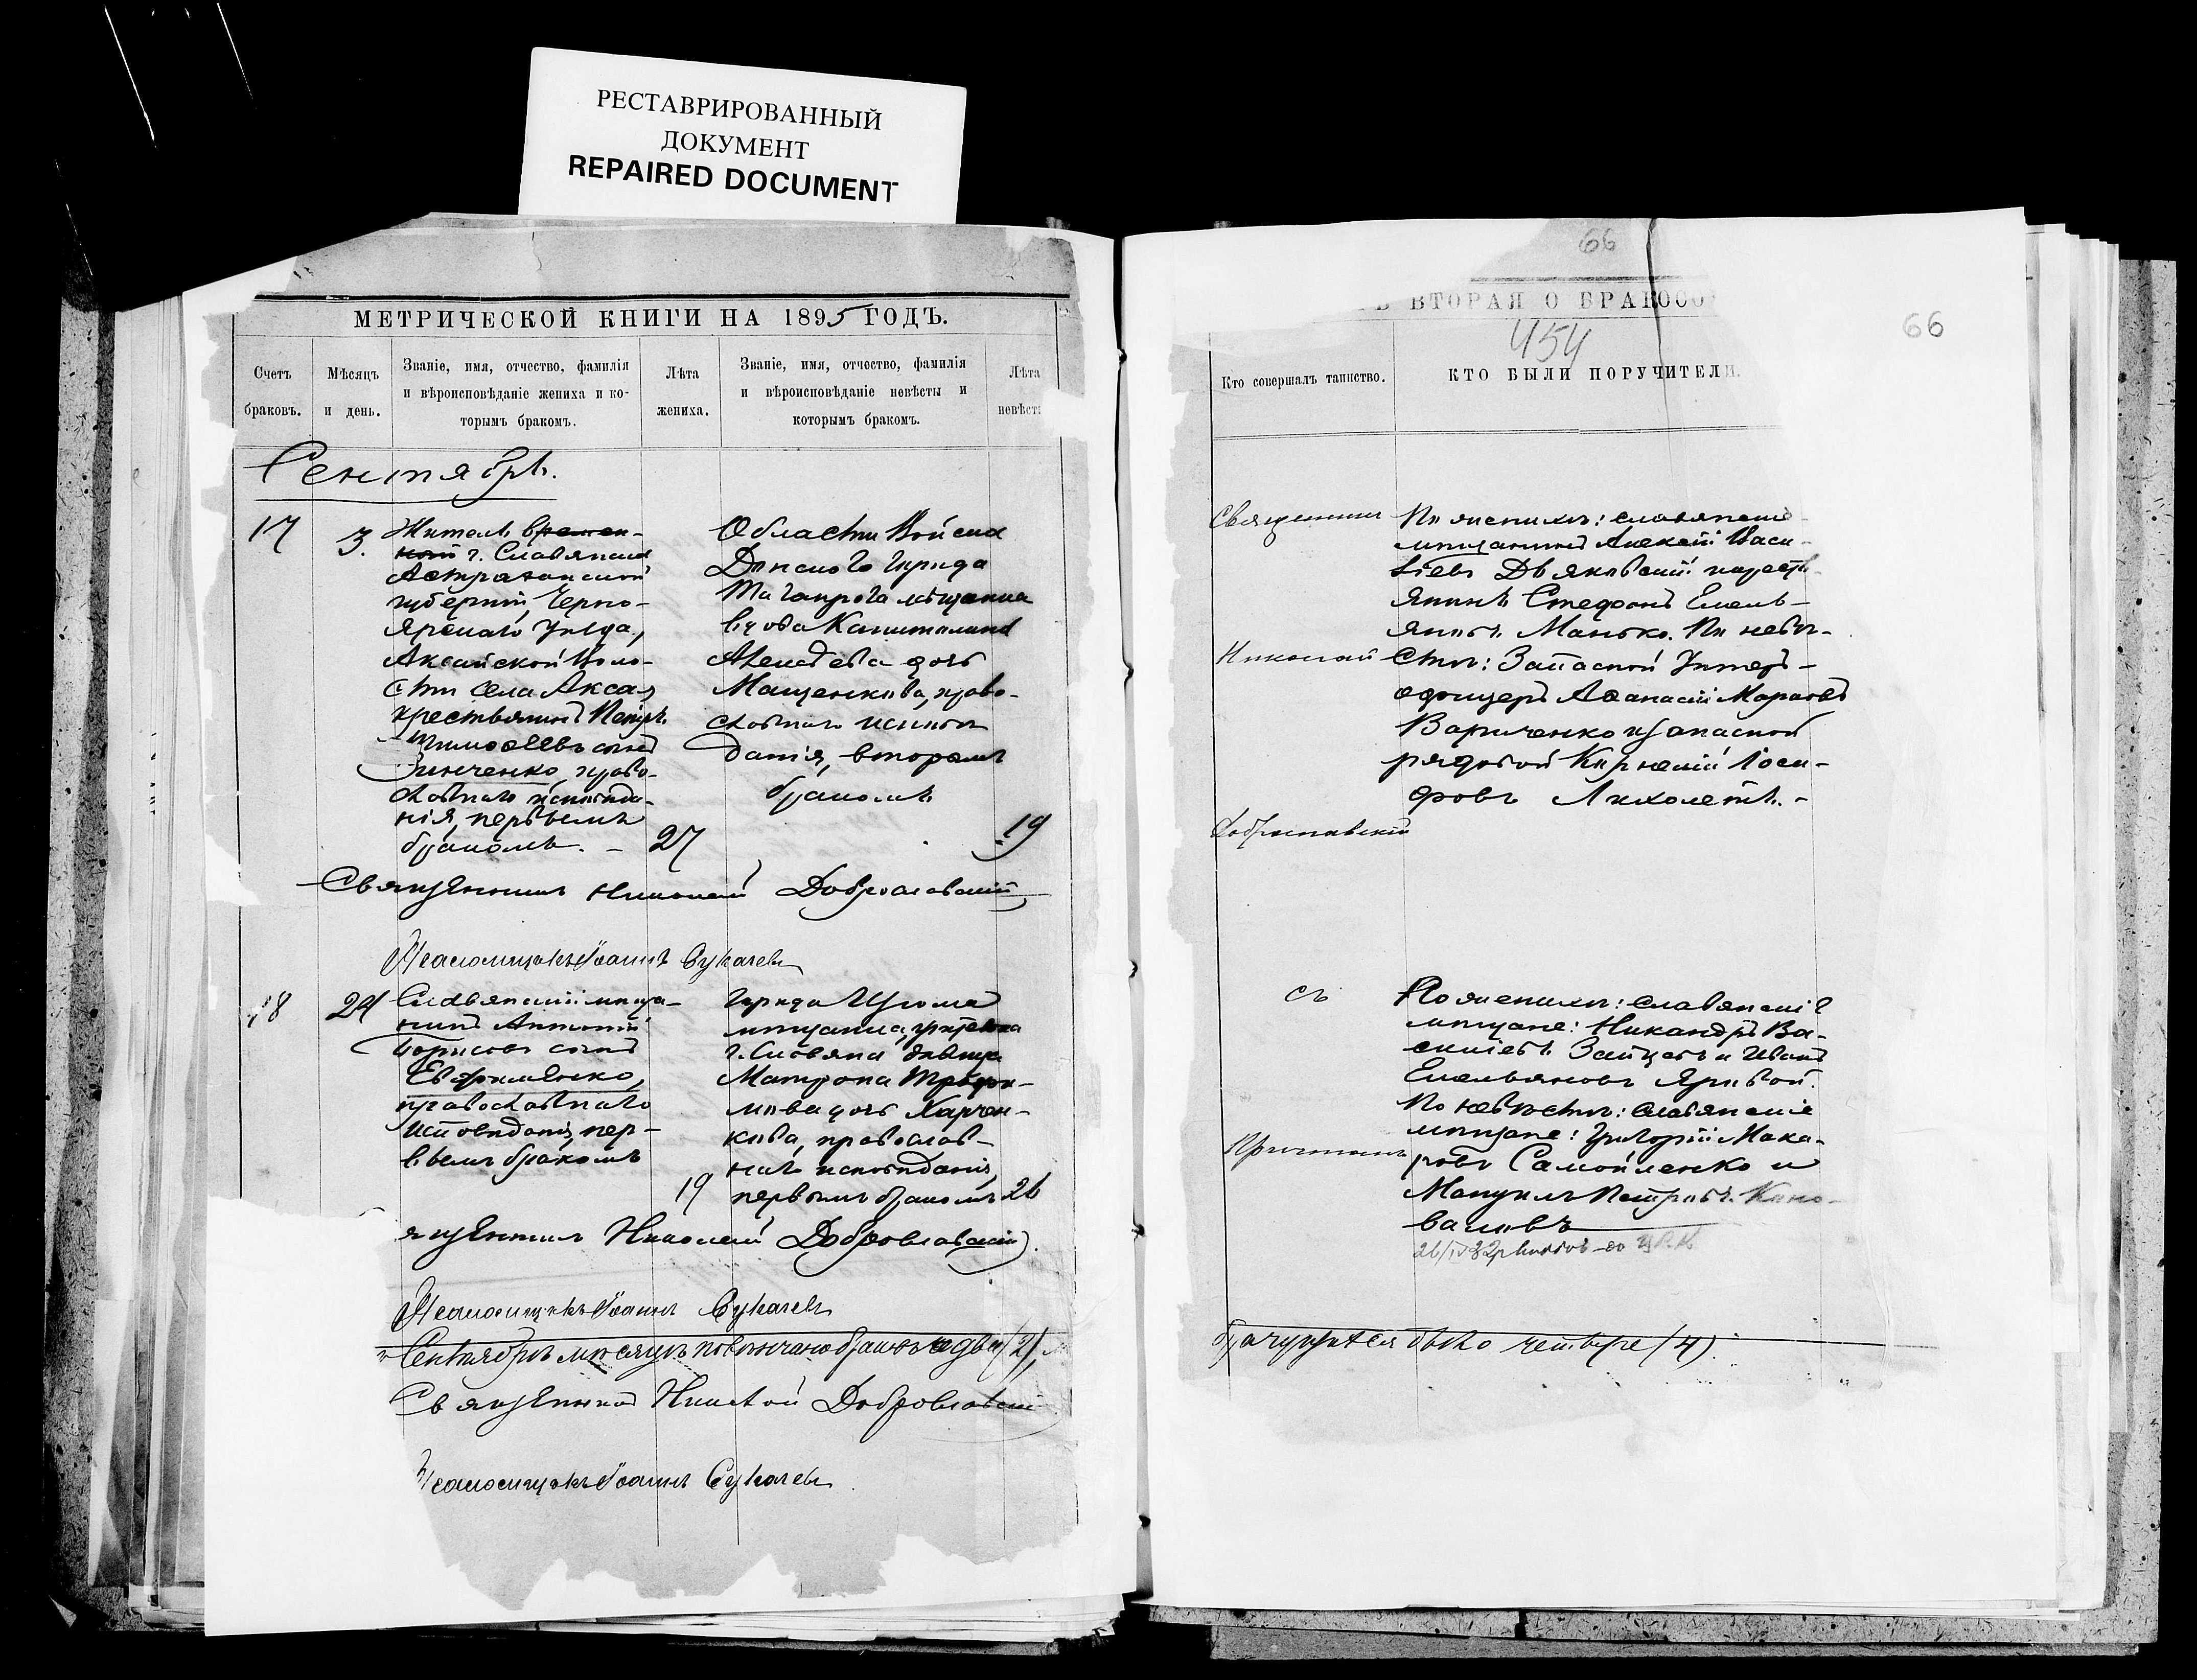 РЕСТАВРИРОВАННЫЙ
ДОКУМЕНТ
REPAIRED DOCUMENT
МЕТРИЧЕСКОЙ КНИГИ НА 1895 ГОДЪ.
Счетъ браковъ.
Мѣсяцъ и день.
Званіе, имя, отчество, фамилія
и вѣроисповѣданіе жениха и ко-
торымъ бракомъ.
Лѣта жениха.
Званіе, имя, отчество, фамилія
и вѣроисповѣданіе невѣсты и
которымъ бракомъ.
Лѣта
невѣст
Сентябрь.
17
3.
Житель времен-
г. Славянска
Астраханской
губерніи, Черно-
Ярскаго уѣзда,
Аксайской Воло-
сти села Аксая
крестьянинъ Петръ
Тимоѳеевъ сынъ
Зинченко, право-
славнаго исповѣда-
нія, первымъ
бракомъ. –
27
Области Войска
Донскаго города
Таганрога мѣщанка
вдова Капитолина
дочь
Мащенкова, право-
славнаго исповѣ
данія, вторымъ
бракомъ
19
Священникъ Николай Доброславскій
Псаломщикъ Іоаннъ Сукачевъ
18
24
Славянскій мѣща-
нинъ Антоній
Борисовъ сынъ
Евфименко,
православнаго
исповѣданія, пер-
вымъ бракомъ
19
Города Изюма
мѣщанка, жителька
г. Славянска дѣвица
Матрона Трофи-
мова дочь Харчен-
кова, православ-
наго исповѣданія,
первымъ бракомъ
26
ященникъ Николай Доброславскій
Псаломщикъ Іоаннъ Сукачевъ
Сентябрѣ мѣсяцѣ повѣнчано браковъ два (2)
Священникъ Николай Доброславскій
Псаломщикъ Іоаннъ Сукачевъ
66
Ь ВТОРАЯ О БРАКОСО
454
66
Кто совершалъ таинство.
КТО БЫЛИ ПОРУЧИТЕЛИ.
Священникъ
Николай
Доброславскій
По женихѣ: славянскій
мѣщанинъ Алексѣй Васи-
льевъ Дьяковскій крестъ-
янинъ Стефанъ Емель-
яновъ Манько. По невѣ-
стѣ: Запасной Унтеръ-
офицеръ Аѳанасій Марковъ
Вариченко запасной
рядовой Корнелій Іоси-
фовъ Лихолетъ. -
съ
Причтомъ
По женихѣ: славянскіе
мѣщане: Никандръ Ва-
силіевъ Зайцевъ и Иванъ
Емельяновъ Яровой.
По невѣстѣ: славянскіе
мѣщане: Григорій Мака-
ровъ Самойленко и
Мануилъ Петровъ Коно-
валовъ
было четыре (4).